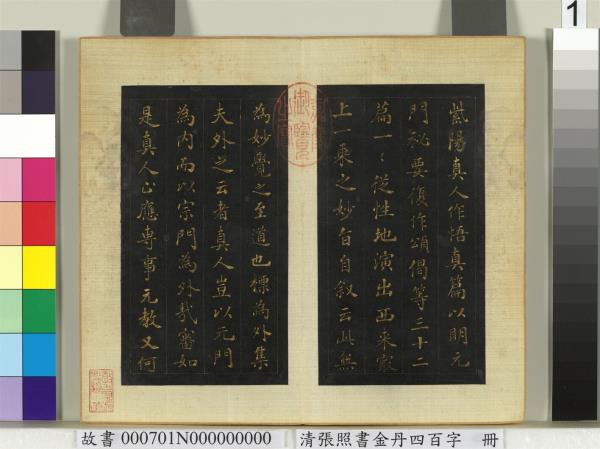 紫陽真人作悟真篇以明元
門祕要復作頌偈等三十二
篇一〻從性地演出西来最
上一乘之妙旨自叙云此無
為妙覺之至道也標為外集
夫外之云者真人豈以元門
為内而以宗門為外哉審如
是真人止應専事元教又何
1
故書 000701N000000000 清張照書金丹四百字 冊